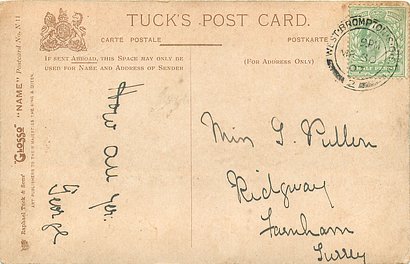 TUCK'S POST CARD.
CARTE POSTALE
POSTKARTE
IF SENT ABROAD, THIS SPACE MAY ONLY BE
USED FOR NAME AND ADDRESS OF SENDER
(FOR ADDRESS ONLY)
"GLOSSO" "NAME" Postcard No. N 11
Raphael Tuck & Sons'
ART PUBLISHERS TO THEIR MAJESTIES THE KING & QUEEN.
How are yer.
George
Miss G. Pullen
Ridgway
Farnham
Surrey
WEST BROMPTON